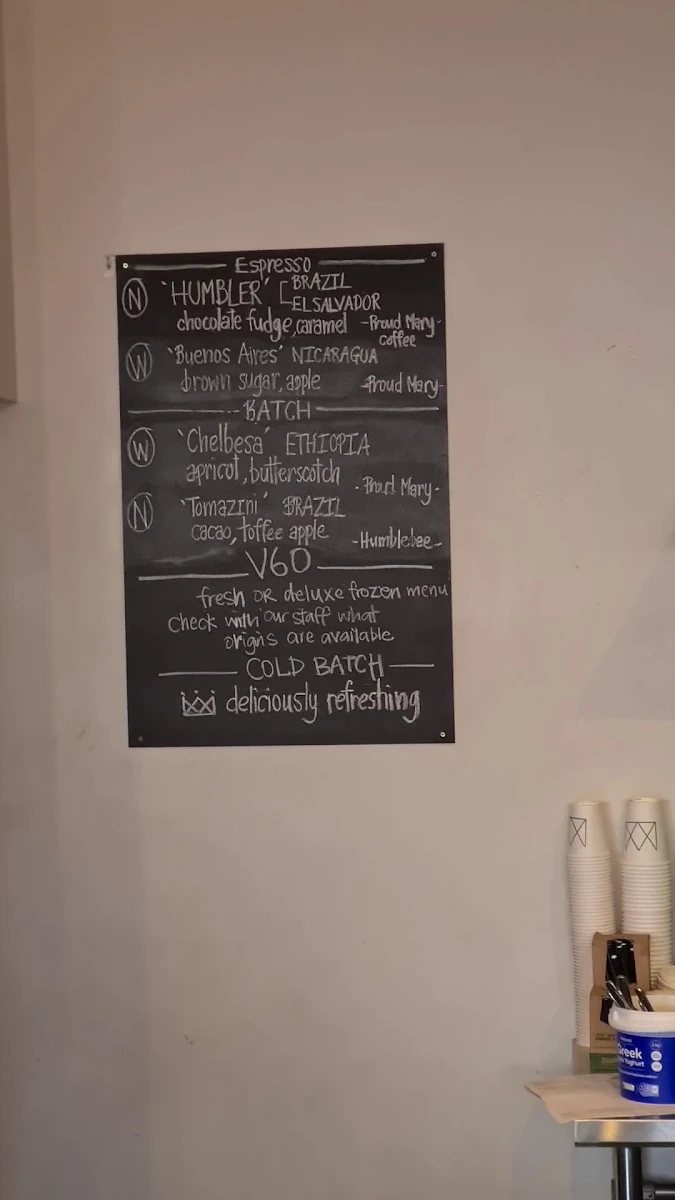 Espresso
N 'HUMBLER' [ BRAZIL
EL SALVADOR
chocolate fudge, caramel -Proud Mary-
coffee
W 'Buenos Aires' NICARAGUA
brown sugar, apple -Proud Mary-
BATCH
W 'Chelbesa' ETHIOPIA
apricot, butterscotch
-Proud Mary-
N 'Tomazini' BRAZIL
cacao, toffee apple
-Humblebee-
V60
fresh OR deluxe frozen menu
Check with our staff what
origins are available
COLD BATCH
deliciously refreshing
Greek
Yoghurt